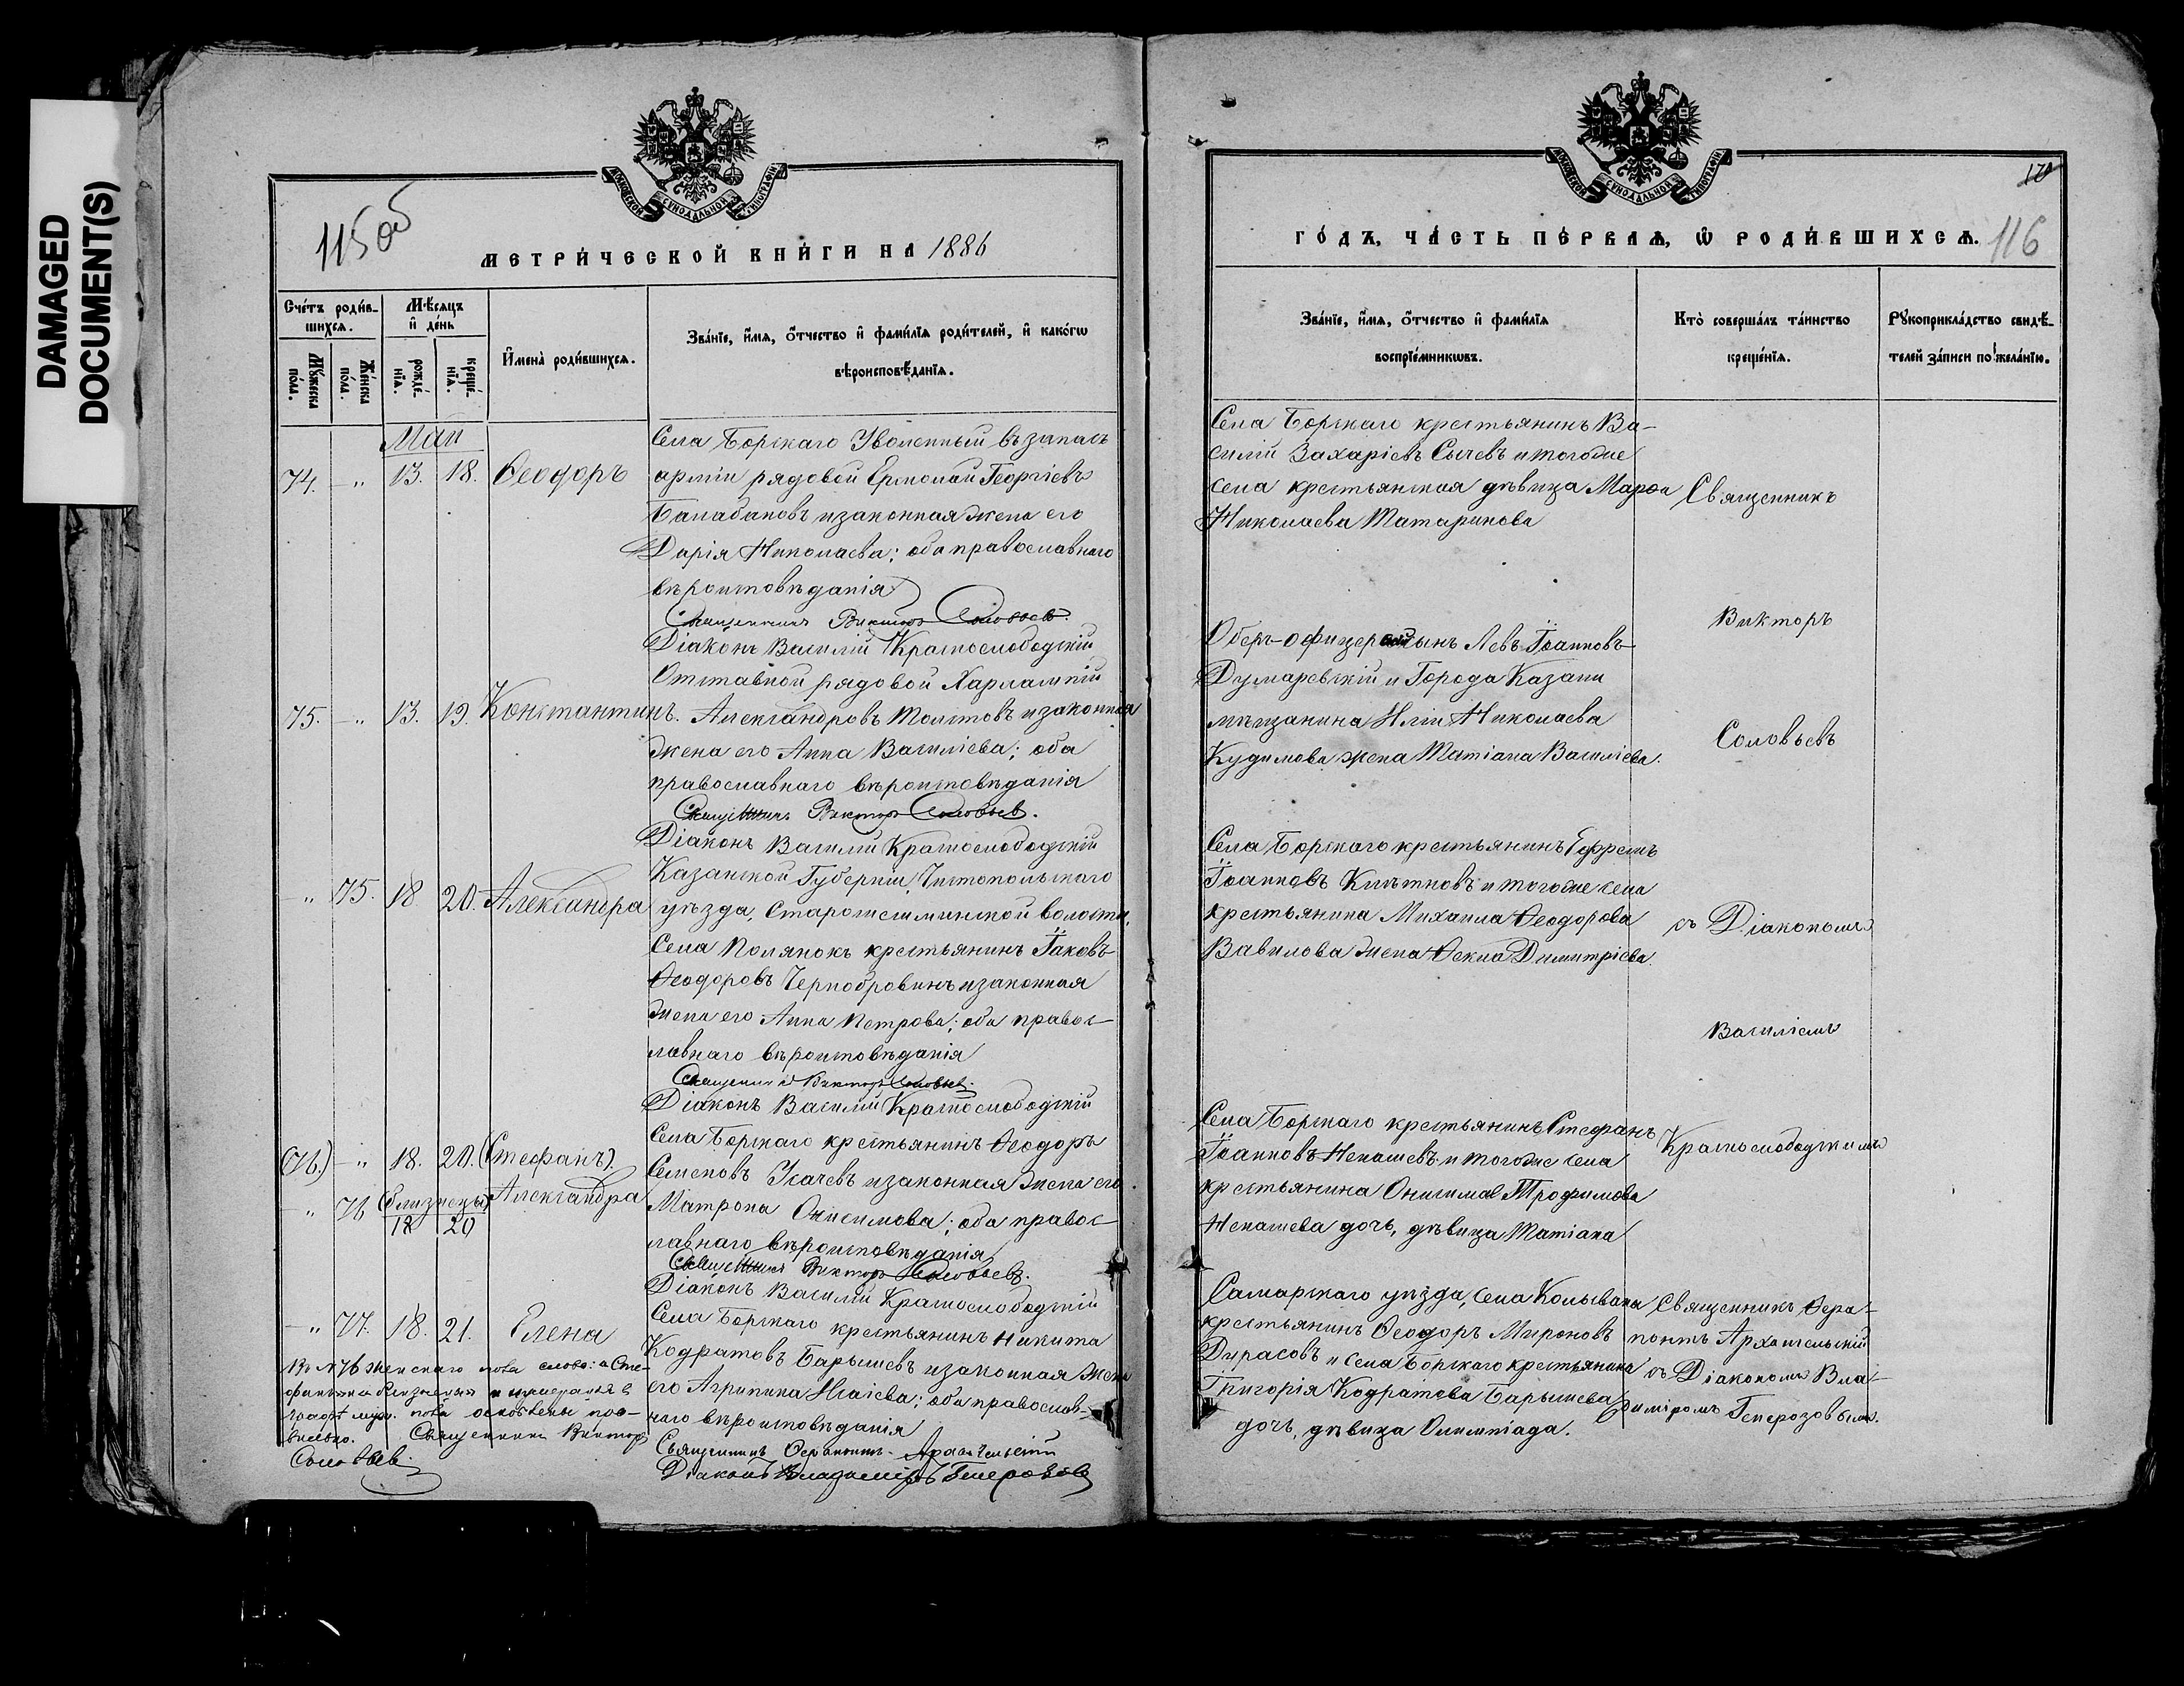 DAMAGED
DOCUMENT(S)
115 об
МОСКОВСКОЙ СѴНОДАЛЬНОЙ ТИПОГРАФІИ
МЕТРИ́ЧЕСКОЙ КНИ́ГИ НА 1886
Сче́тъ роди́в-
шихся.
Мѣ́сяцъ
и҆ де́нь
Мꙋ́жеска
по́ла.
Же́нска
по́ла.
рожде́-
нїѧ.
креще́-
нїѧ.
И҆мена̀ роди́вшихсѧ.
Зва́нїе, и҆́мѧ, ѻ҆́тчество и҆ фами́лїѧ роди́телей, и҆ како́гѡ
вѣроисповѣ́данїѧ.
Май
74. — „ 13. 18. Ѳеодоръ
Села Борскаго Уволенный въ запасъ
арміи рядовой Ермолай Георгіевъ
Балабановъ и законная жена его
Дарія Николаева; оба православнаго
вѣроисповѣданія
Священникъ Викторъ Соловьев.
Діаконъ Василій Краснослободскій
75. — „ 13. 19. Константинъ.
Отставной рядовой Харлампій
Александровъ Толстовъ и законная
жена его Анна Василіева; оба
православнаго вѣроисповѣданія
Священникъ Викторъ Соловьев.
Діаконъ Василій Краснослободскій
„ 75. 18. 20. Александра
Казанской Губерніи, Чистопольскаго
уѣзда, Старошешминской волости,
Села Полянокъ крестьянинъ Іаковъ
Ѳеодоровъ Чернобровинъ и законная
жена его Анна Петрова; оба правос-
лавнаго вѣроисповѣданія
Священникъ Викторъ Соловьев.
Діаконъ Василій Краснослободскій
(76.) — „ 18. 20. (Стефанъ).
— „ 76 (близнецы) Александра
18 20
Села Борскаго крестьянинъ Ѳеодоръ
Семеновъ Усачевъ и законная жена его
Матрона Онисимова; оба правос-
лавнаго вѣроисповѣданія
Священникъ Викторъ Соловьевъ.
Діаконъ Василій Краснослободскій
— „ 77. 18. 21. Елена
Села Борскаго крестьянинъ Никита
Кодратовъ Барышевъ и законная жена
его Агрипина Исаіева; оба православ-
наго вѣроисповѣданія
Священникъ Ѳерапонтъ Архангельскій
Діаконъ Владиміръ Генерозовъ
Въ № 76 женскаго пола слова: а Сте-
фанъ близнецы и
графѣ муж. пола
Священникъ Викторъ
Соловьев.
120
МОСКОВСКОЙ СѴНОДАЛЬНОЙ ТИПОГРАФІИ
ГО́ДЪ, ЧА́СТЬ ПЕ́РВАѦ, Ѡ҆ РОДИ́ВШИХСѦ. 116
Зва́нїе, и҆́мѧ, ѻ҆́тчество и҆ фами́лїѧ
воспрїе́мникѡвъ.
Кто̀ соверша́лъ та́инство
креще́нїѧ.
Рꙋкоприкла́дство свидѣ́-
телей за́писи по жела́нїю.
Села Борскаго крестьянинъ Ва-
силій Захаріевъ Сычевъ и тогоже
села крестьянская дѣвица Марѳа
Николаева Татаринова
Оберъ-офицерскій сынъ Левъ Іоанновъ
Думаревскій и Города Казани
мѣщанина Иліи Николаева
Кудимова жена Татіана Василіева.
Села Борскаго крестьянинъ Ефремъ
Іоанновъ и тогоже села
крестьянина Михаила Ѳеодорова
Вавилова жена Ѳекла Димитріева.
Села Борскаго крестьянинъ Стефанъ
Іоанновъ Ненашевъ и тогоже села
крестьянина Онисима Трофимова
Ненашева дочь, дѣвица Татіана
Самарскаго уѣзда, села Колывана
крестьянинъ Ѳеодоръ Мироновъ
Дирасовъ и села Борскаго крестьянина
Григорія Кодратова Барышева
дочь, дѣвица Олимпіада.
Священникъ
Викторъ
Соловьевъ
съ Діакономъ
Василіемъ
Краснослободскимъ
Священникъ Ѳера-
понтъ Архангельскій
съ Діакономъ Вла-
диміромъ Генерозовымъ.